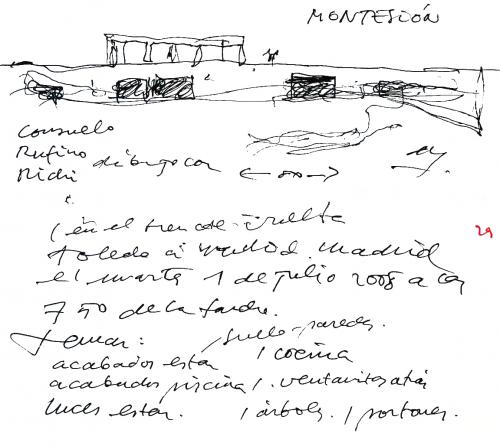 MONTESIÓN
Consuelo
Rufino dibujo con
Richi
29
(en el tren de vuelta
Toledo a Madrid. Madrid
el martes 1 de julio 2008 a las
7 50 de la tarde.
Temas: suelo-paredes.
acabados estar / cocina
acabados piscina /. ventanitas atrás
luces estar. / árboles. / portones.